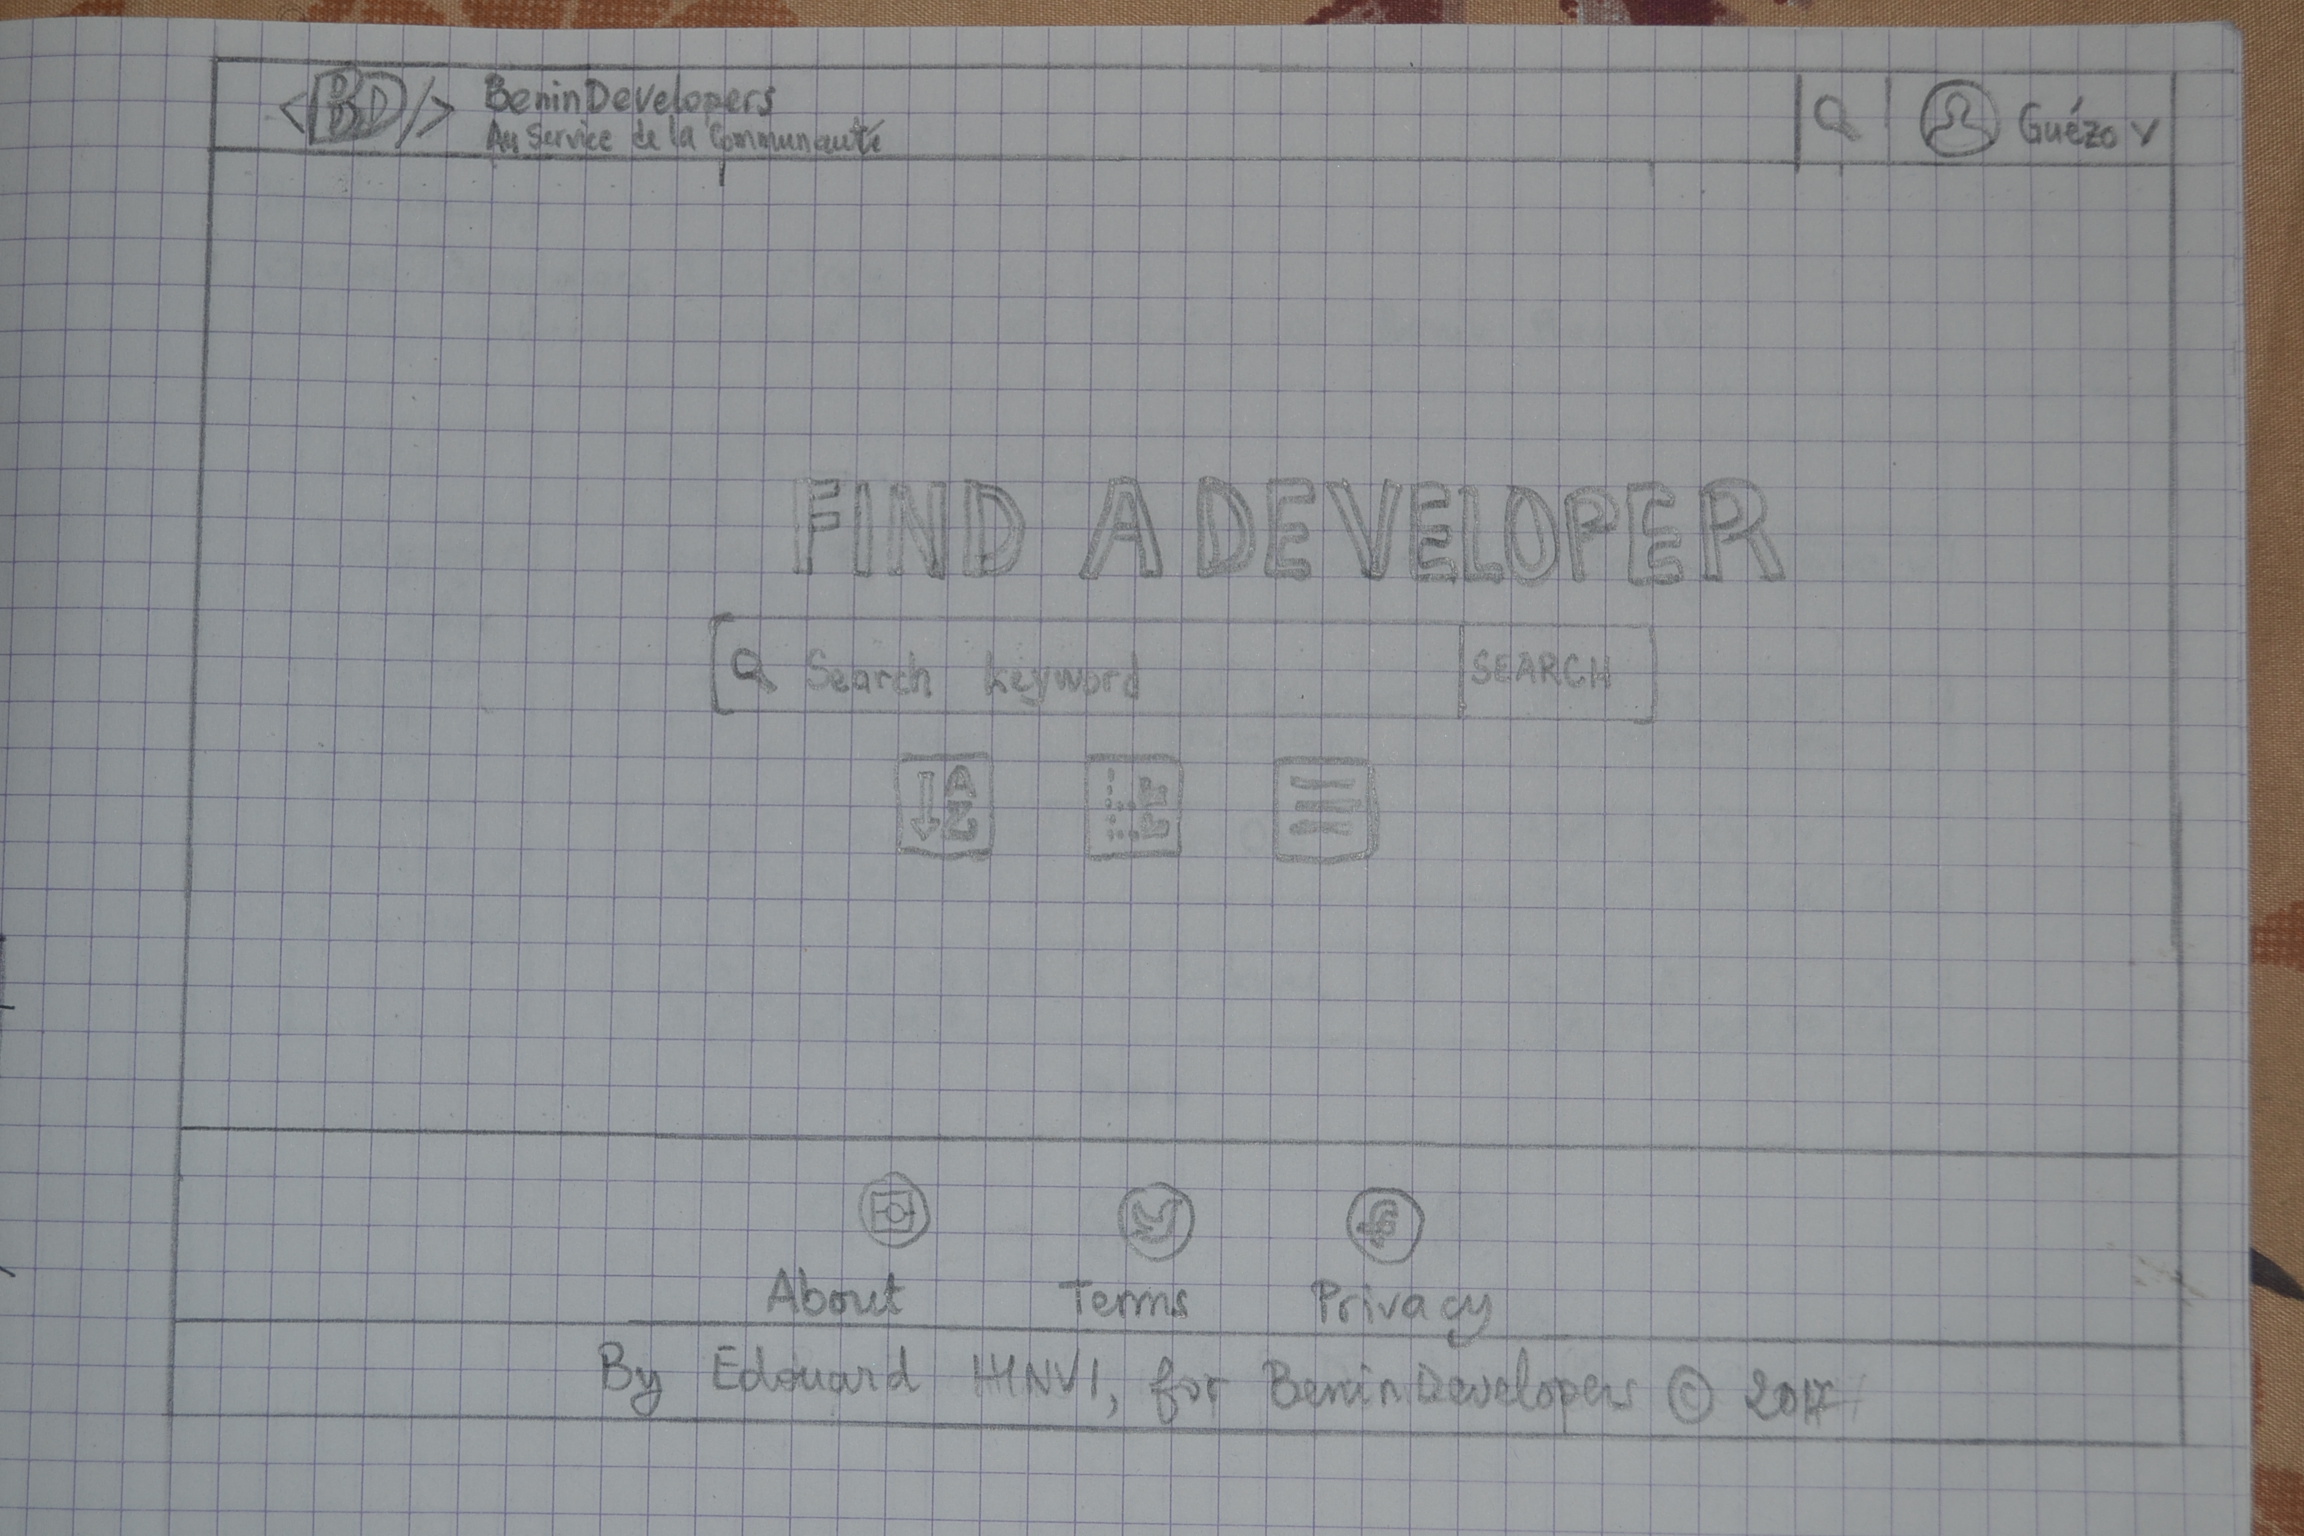 <BD/> BeninDevelopers
Au Service de la Communauté
Guézo
FIND A DEVELOPER
Search keyword
SEARCH
A
Z
About Terms Privacy
By Edouard HINVI, for BeninDevelopers © 2017